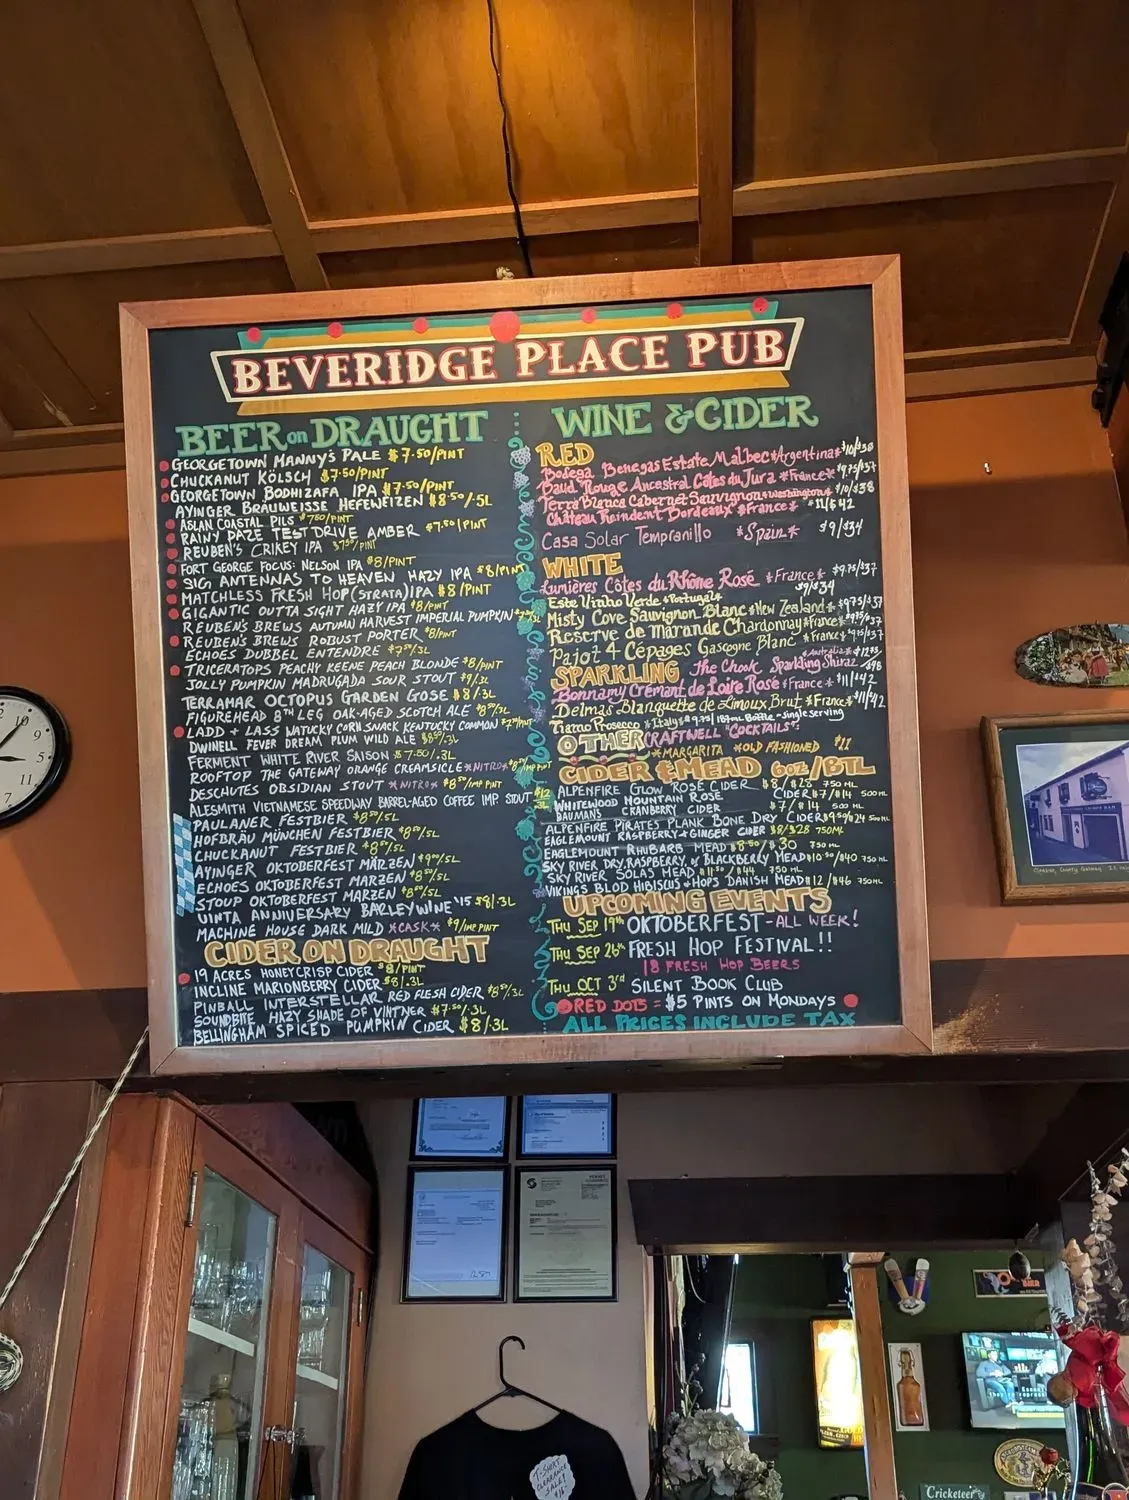 BEVERIDGE PLACE PUB
BEER on DRAUGHT
GEORGETOWN MANNY'S PALE $7.50/PINT
CHUCKANUT KÖLSCH $7.50/PINT
GEORGETOWN BODHIZAFA IPA $7.50/PINT
AYINGER BRÄUWEISSE HEFEWEIZEN $8.50/.5L
ASLAN COASTAL PILS $7.50/PINT
RAINY DAZE TEST DRIVE AMBER $7.50/PINT
REUBEN'S CRIKEY IPA $7.50/PINT
FORT GEORGE FOCUS: NELSON IPA $8/PINT
SIG ANTENNAS TO HEAVEN HAZY IPA $8/PINT
MATCHLESS FRESH HOP (STRATA) IPA $8/PINT
GIGANTIC OUTTA SIGHT HAZY IPA $8/PINT
REUBEN'S BREWS AUTUMN HARVEST IMPERIAL PUMPKIN
REUBEN'S BREWS ROBUST PORTER $8/PINT
ECHOES DUBBEL ENTENDRE $7.50/.3L
TRICERATOPS PEACHY KEENE PEACH BLONDE $8/PINT
JOLLY PUMPKIN MADRUGADA SOUR STOUT $9/.3L
TERRAMAR OCTOPUS GARDEN GOSE $8/.3L
FIGUREHEAD 8TH LEG OAK-AGED SCOTCH ALE $8.50/.3L
LADD + LASS NATUCKY CORN SNACK KENTUCKY COMMON $7.50/PINT
DWINELL FEVER DREAM PLUM WILD ALE $8.50/.3L
FERMENT WHITE RIVER SAISON $7.50/.3L
ROOFTOP THE GATEWAY ORANGE CREAMSICLE *NITRO* $8.50/IMP PINT
DESCHUTES OBSIDIAN STOUT *NITRO* $8.50/IMP PINT
ALESMITH VIETNAMESE SPEEDWAY BARREL-AGED COFFEE IMP. STOUT $12/.3L
PAULANER FESTBIER $8.50/.5L
HOFBRÄU MÜNCHEN FESTBIER $8.50/.5L
CHUCKANUT FESTBIER $8.50/.5L
AYINGER OKTOBERFEST MÄRZEN $9.00/.5L
ECHOES OKTOBERFEST MARZEN $8.50/.5L
STOUP OKTOBERFEST MARZEN $8.50/.5L
UINTA ANNIVERSARY BARLEYWINE '15 $8/.3L
MACHINE HOUSE DARK MILD *CASK* $9/IMP PINT
CIDER ON DRAUGHT
19 ACRES HONEYCRISP CIDER $8/PINT
INCLINE MARIONBERRY CIDER $8/.3L
PINBALL INTERSTELLAR RED FLESH CIDER $8.50/.3L
SOUNDBITE HAZY SHADE OF VINTNER $7.50/.3L
BELLINGHAM SPICED PUMPKIN CIDER $8/.3L
WINE & CIDER
RED
Bodega Benegas Estate Malbec *Argentina* $10/$38
Baud Rouge Ancestral Côtes du Jura *France* $9.75/$37
Terra Blanca Cabernet Sauvignon *Washington* $10/$38
Château Treindent Bordeaux *France* $11/$42
Casa Solar Tempranillo *Spain* $9/$34
WHITE
Lumières Côtes du Rhône Rosé *France* $9.75/$37
Este Vinho Verde *Portugal* $9/$34
Misty Cove Sauvignon Blanc *New Zealand* $9.75/$37
Reserve de Marande Chardonnay *France* $9.75/$37
Pajot 4 Cépages Gascogne Blanc *France* $9.75/$37
SPARKLING The Chook Sparkling Shiraz *Australia* $12.75/$48
Bonnamy Crémant de Loire Rosé *France* $11/$42
Delmas Blanquette de Limoux Brut *France* $11/$42
Tiamo Prosecco *Italy* $9.75/187ml Bottle - single serving
OTHER CRAFTWELL "COCKTAILS":
*MARGARITA *OLD FASHIONED $11
CIDER & MEAD 6oz/BTL
ALPENFIRE GLOW ROSÉ CIDER $8/$28 750 ML
WHITEWOOD MOUNTAIN ROSE CIDER $7/$14 500 ML
BAUMANS CRANBERRY CIDER $7/$14 500 ML
ALPENFIRE PIRATES PLANK BONE DRY CIDER $9.50/$24 500 ML
EAGLEMOUNT RASPBERRY & GINGER CIDER $8/$28 750ML
EAGLEMOUNT RHUBARB MEAD $8.50/$30 750 ML
SKY RIVER DRY, RASPBERRY, or BLACKBERRY MEAD $10.50/$40 750 ML
SKY RIVER SOLAS MEAD $11.50/$44 750 ML
VIKINGS BLOD HIBISCUS + HOPS DANISH MEAD $12/$46 750 ML
UPCOMING EVENTS
THU SEP 19th OKTOBERFEST - ALL WEEK!
THU SEP 26th FRESH HOP FESTIVAL!!
18 FRESH HOP BEERS
THU OCT 3rd SILENT BOOK CLUB
RED DOTS = $5 PINTS ON MONDAYS
ALL PRICES INCLUDE TAX
T-SHIRT
CLEARANCE
SALE!
Cricketeer